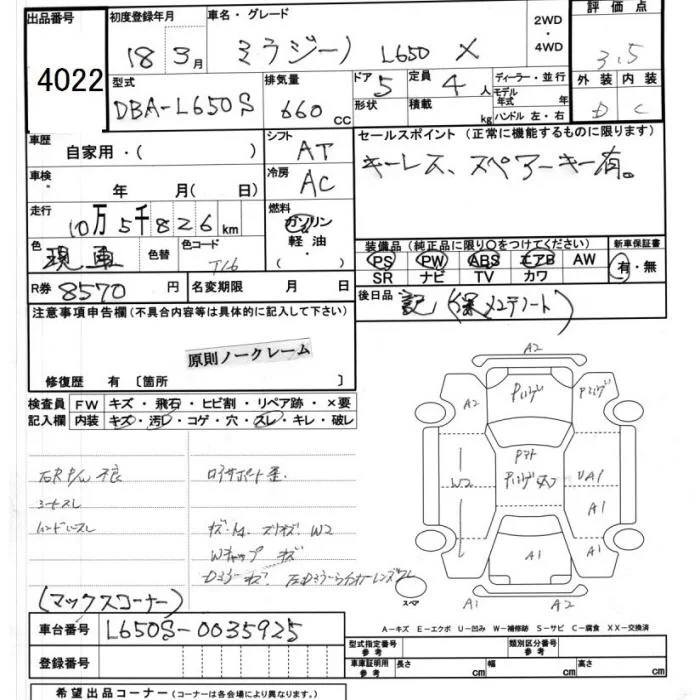 出品番号 初度登録年月 車名・グレード 2WD・4WD 評価点
4022 18 3月 ミラジーノ L650 X 3.5
型式 排気量 ドア 5 定員 4人 ディーラー・並行 外装 内装
DBA-L650S 660cc 形状 積載 kg モデル年式 年 D C
ハンドル 左・右
車歴 シフト セールスポイント (正常に機能するものに限ります)
自家用・( ) AT キーレス、スペアーキー有。
車検 冷房
年 月( 日) AC
走行 燃料
10万5千826km ガソリン
軽油・
( )
色 色替 色コード 装備品(純正品に限り○をつけてください) 新車保証書
現車 T16 PS PW ABS エアB AW 有・無
SR ナビ TV カワ
R券 8570円 名変期限 月 日 後日品
記(保メンテノート)
注意事項申告欄(不具合内容等は具体的に記入して下さい)
原則ノークレーム
修復歴 有〔箇所 〕
検査員 FW キズ・飛石・ヒビ割・リペア跡・×要
記入欄 内装 キズ・汚レ・コゲ・穴・スレ・キレ・破レ
右R P/W 不良
シートスレ
ハンドルスレ
W2
Wキャップ キズ
A2
A2
W2
UA1
A1
A1
スペア A1 A2
(マックスコーナー)
A-キズ E-エクボ U-凹み W-補修跡 S-サビ C-腐食 XX-交換済
車台番号 L650S-0035925
登録番号
型式指定番号 参考 類別区分番号 参考
車庫証明用 参考 長さ cm 幅 cm 高さ cm
希望出品コーナー(コーナーは各会場により異なります。)